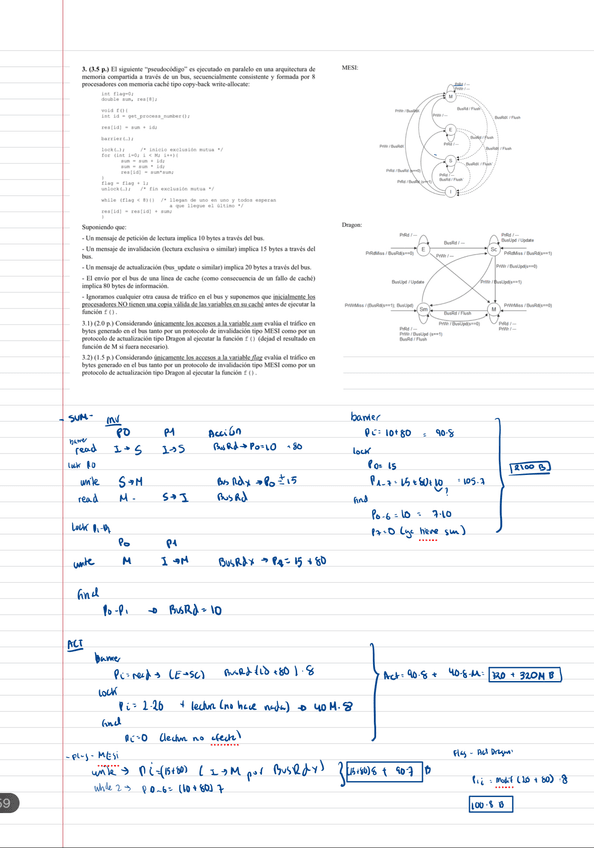 3. (3.5 p.) El siguiente “pseudocódigo” es ejecutado en paralelo en una arquitectura de
memoria compartida a través de un bus, secuencialmente consistente y formada por 8
procesadores con memoria caché tipo copy-back write-allocate:
int flag=0;
double sum, res[8];
void f(){
int id = get_process_number();
res[id] = sum + id;
barrier(…);
lock(…); /* inicio exclusión mutua */
for (int i=0; i < M; i++){
sum = sum + id;
sum = sum * id;
res[id] = sum*sum;
}
flag = flag + 1;
unlock(…); /* fin exclusión mutua */
while (flag < 8){} /* llegan de uno en uno y todos esperan
a que llegue el último */
res[id] = res[id] + sum;
}
Suponiendo que:
- Un mensaje de petición de lectura implica 10 bytes a través del bus.
- Un mensaje de invalidación (lectura exclusiva o similar) implica 15 bytes a través del
bus.
- Un mensaje de actualización (bus_update o similar) implica 20 bytes a través del bus.
- El envío por el bus de una línea de cache (como consecuencia de un fallo de caché)
implica 80 bytes de información.
- Ignoramos cualquier otra causa de tráfico en el bus y suponemos que inicialmente los
procesadores NO tienen una copia válida de las variables en su caché antes de ejecutar la
función f().
3.1) (2.0 p.) Considerando únicamente los accesos a la variable sum evalúa el tráfico en
bytes generado en el bus tanto por un protocolo de invalidación tipo MESI como por un
protocolo de actualización tipo Dragon al ejecutar la función f() (dejad el resultado en
función de M si fuera necesario).
3.2) (1.5 p.) Considerando únicamente los accesos a la variable flag evalúa el tráfico en
bytes generado en el bus tanto por un protocolo de invalidación tipo MESI como por un
protocolo de actualización tipo Dragon al ejecutar la función f().
MESI:
PrRd / —
PrWr / —
M
E
S
I
BusRd / Flush
Dragon:
PrRd / —
PrRd / —
BusUpd / Update
BusRd / —
E
Sc
PrRdMiss / BusRd(s==0)
PrRdMiss / BusRd(s==1)
PrWr / —
PrWr / BusUpd(s==1)
BusUpd / Update
PrWr / BusUpd(s==0)
PrWrMiss / BusRd(s==1); BusUpd)
Sm
M
PrWrMiss / BusRd(s==0)
BusRd / Flush
PrRd / —
PrWr / BusUpd (s==1)
BusRd / Flush
PrRd / —
PrWr / —
- SUM - INV
P0 P1 Acción
read I → S I→S BusRd → P0=10 +80
lock P0
write S→M BusRdx → P0 = 15
read M - S → I BusRd
Lock P1-P7
P0 P1
write M I →M BusRdx → P1 = 15 +80
final
P0-P1 → BusRd = 10
barrier
Pi= 10+80 = 90·8
lock
P0= 15
P1-7 = 15 + 80 + 10 = 105·7
?
final
P0-6 = 10 = 7·10
P7=0 (ya tiene sum)
2100 B
ACT
barrier
Pi= read → (E→SC) BusRd (10 +80) · 8
lock
Pi = 2·20 + lectura (no hace nada) → 40 M · 8
final
Pi=0 (lectura no afecta)
Act= 90·8 + 40·8·M = 720 + 320M B
- Flag - MESI
write → Pi=(15+80) ( I → M por BusRdx)
while 2 → P0-6 = (10 + 80) 7
(15+80)8 + 90·7 B
Flag - Act Dragon:
Pi = Modif (20 + 80) · 8
100·8 B
59